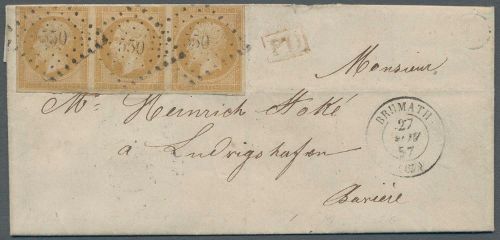 550 550 550
P.D.
Monsieur
Mr. Heinrich Hoké
à Ludwigshafen
Bavière
BRUMATH
27
57